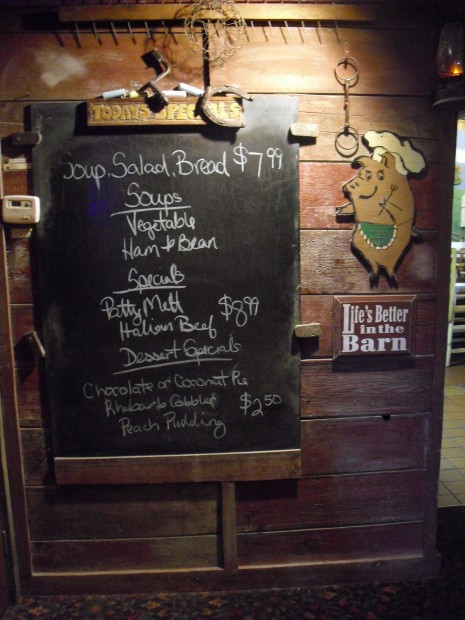 TODAY'S SPECIALS
Soup, Salad, Bread $7.99
Soups
Vegetable
Ham & Bean
Specials
Patty Melt
Italian Beef $8.99
Dessert Specials
Chocolate or Coconut Pie
Rhubarb Cobbler $2.50
Peach Pudding
Life's Better
in the
Barn